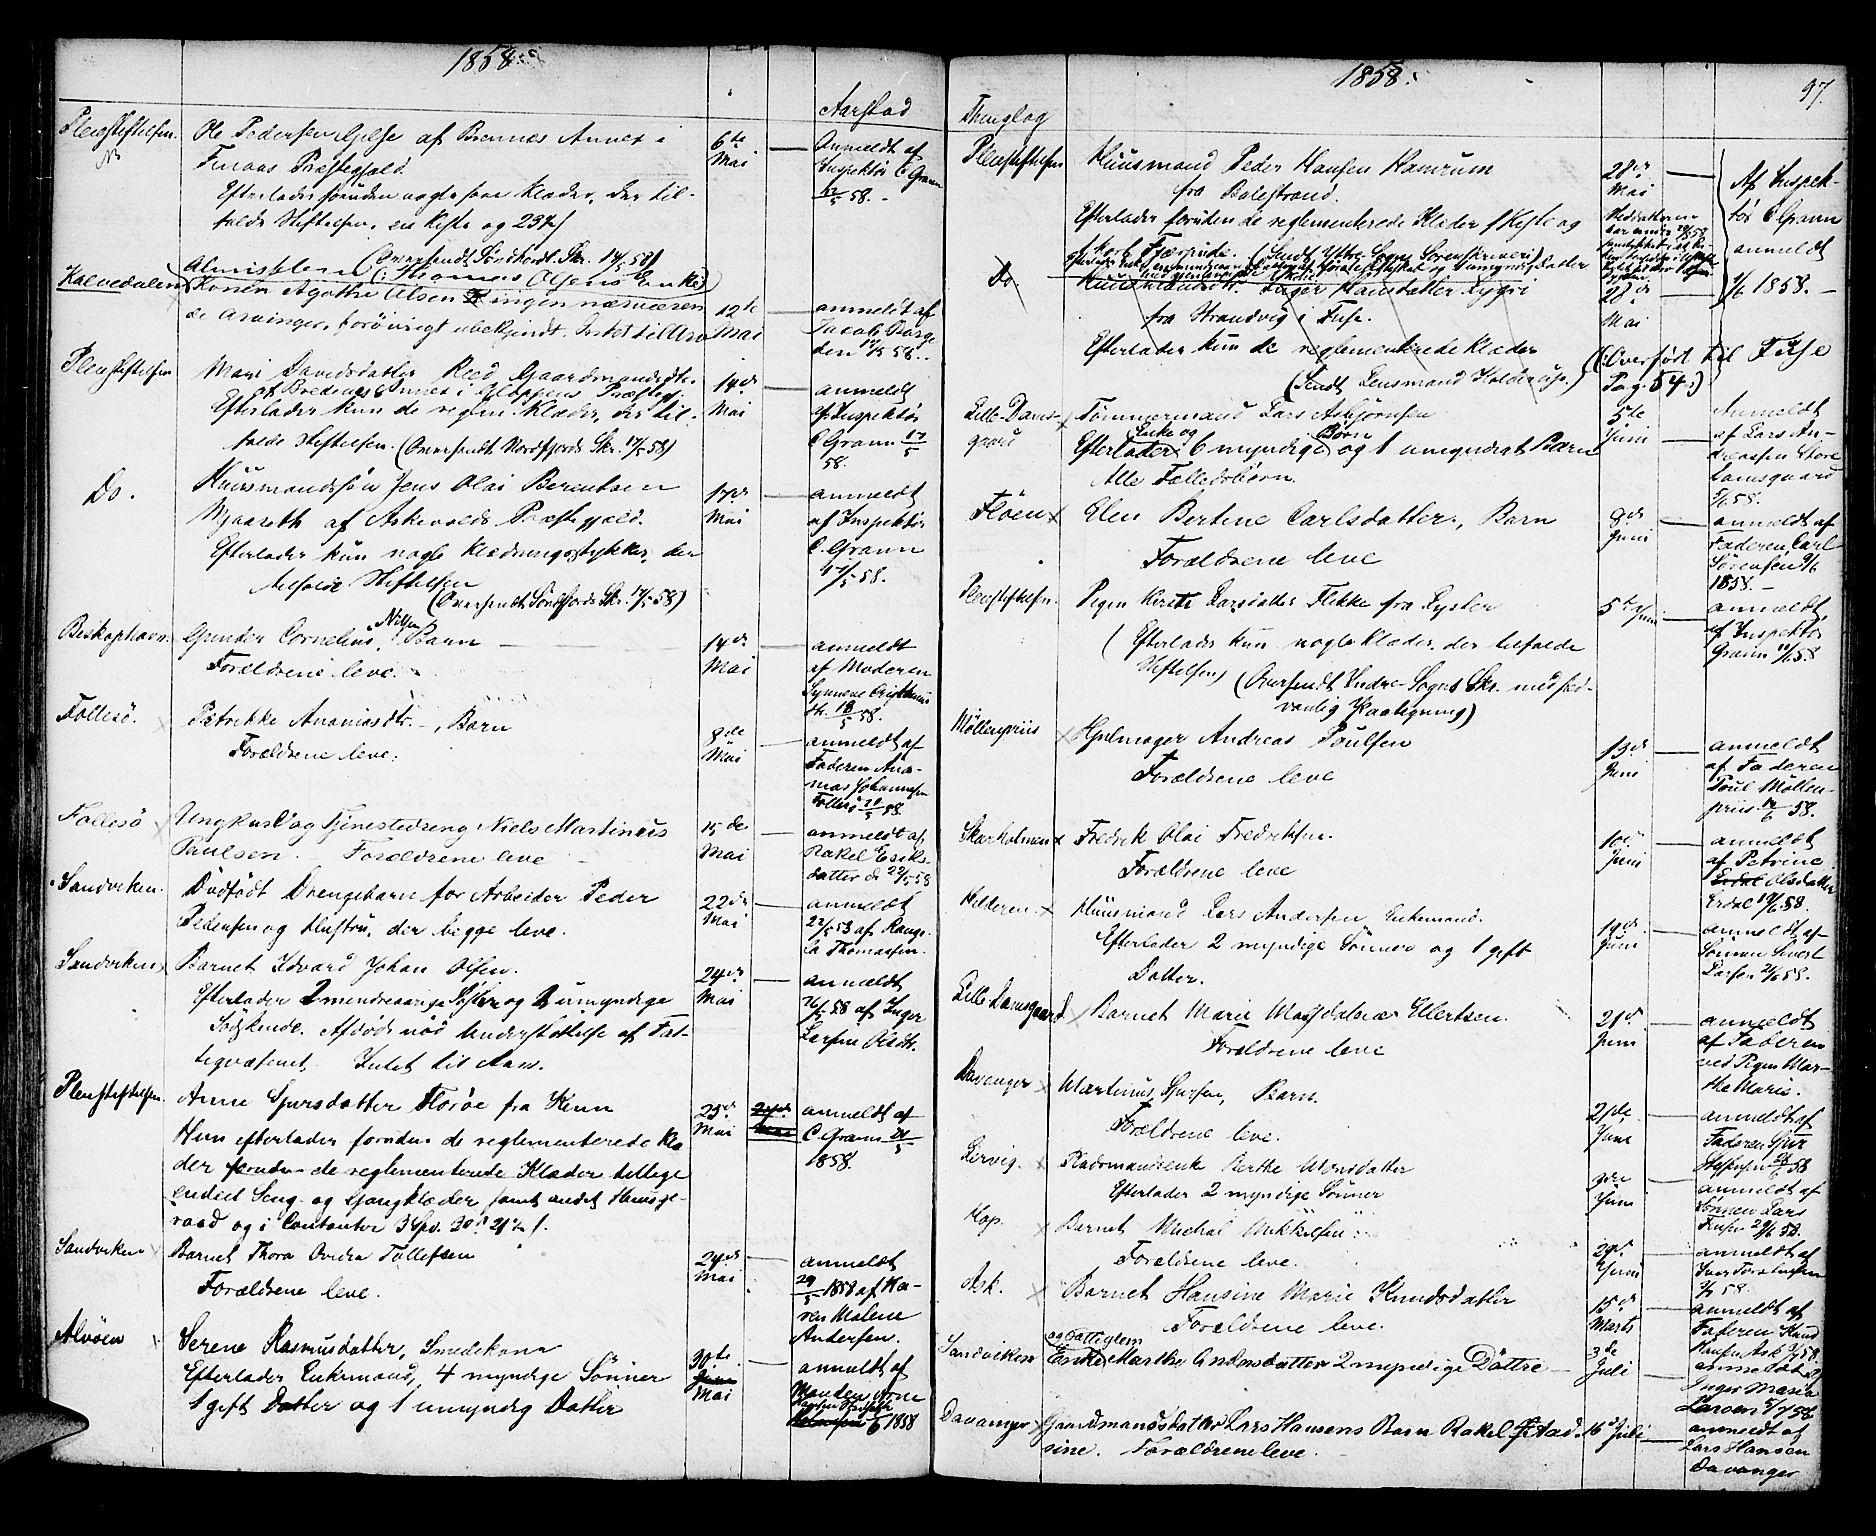 1858.
Aarstad
Pleiestiftelsen.
Ole Pedersen af Brennes Annex i
Finaas Præstegjeld.
Efterlader foruden nogle faae Klæder, der til-
faldt Stiftelsen, en Kiste og 23
(Oversendt Søndhordl. Skr. 17/5 58)
6te
Mai
Anmeldt af
Inspektør C Gram
58.
Kalvedalen
Almislem (: Thomas Olsens Enke)
Konen Agathe Olsen ingen nærværen-
de Arvinger, forøvrigt ubekjendt. Intet til Arv
12te
Mai
anmeldt af
Jacob
den 17/5 58.
Pleiestiftelsen
Mari Davidsdatter Reed Gaardmandsdtr.
af Bredenes Annex i Gloppens Præstegj.
Efterlader kun de reglem. Klæder, der til-
faldt Stiftelsen. (Oversendt Nordfjords Skr. 17/5 58)
14de
Mai
anmeldt
af Inspektør
C Gram 17/5
58.
Do.
Huusmandssøn Jens Olai Berentsen
af Askevolds Præstegjeld.
Efterlader kun nogle Klædningsstykker, der
tilfaldt Stiftelsen
(Oversendt Søndfjords Skr. 17/5 58)
17de
Mai
anmeldt
af Inspektør
C. Gram
17/5 58.
Biskopshavn
Gunder Cornelius Nilsen, Barn
Forældrene leve.
14de
Mai
anmeldt
af Moderen
Synneve
dtr. 18/5 58.
Follesø.
Petrikke Ananiasdtr. , Barn
Forældrene leve.
8de
Mai
anmeldt af
Faderen Ana-
nias Johannesen
Follesø 58.
Follesø
Ungkarl og Tjenestedreng Niels Martinus
Paulsen. Forældrene leve
15de
Mai
anmeldt af
Rakel Eriks-
datter d. 22/5 58
Sandviken.
Dødfødt Drengebarn for Arbeider Peder
Pedersen og Hustru, der begge leve.
22de
Mai
anmeldt
22/5 58 af
Thomassen.
Sandviken
Barnet Edvard Johan Olsen.
Efterlader 2 mindreaarige Søster og 2 umyndige
Sødskende. Afdøde nød Understøttelse af Fat-
tigvæsenet. Intet til Arv.
24de
Mai
anmeldt
26/5 58 af Inger
Larsen Olsdtr.
Pleiestiftelsen.
Anne Sjursdatter Florøe fra Kinn
Hun efterlader foruden de reglementerede Klæ-
der foruden de reglementerede Klæder tillige
endeel Seng- og Gangklæder samt andet Huusge-
raad og i Contanter 3 Spd. 30
25de
Mai
anmeldt af
C. Gram
1858.
Sandviken
Barnet Thora Ovidia Tollefsen
Forældrene leve.
24de
Mai
anmeldt
29/5 1858 af Ka-
ren Malene
Andersen.
Alvøen
Serene Rasmusdatter, Smedekone
Efterlader Enkemand, 4 myndige Sønner
1 gift Datter og 1 umyndig Datter
30te
Mai
anmeldt af
Manden Arne
1858
1858.
97.
Thinglag
Pleiestiftelsen
Huusmand Peder Hansen Hamrum
fra Balestrand.
Efterlader foruden de reglementerede Klæder 1 Kiste og
1 kort Faarepude. (Sendt Ydtre Sogns Sorenskriveri)
28de
Mai
Af Inspek-
tør C Gram
anmeldt
1/6 1858.
Do.
Inger Hansdatter Lygri
fra Strandvig i Fuse.
Efterlader kun de reglementerede Klæder
(Sendt Lensmand Holdhus.)
28de
Mai
(Overført til Fuse
Pag. 54:)
Lille-Dams-
gaard
Tømmermand Lars Asbjørnsen
Efterlader Enke og 6 myndige Børn og 1 umyndigt Barn
Alle Fællesbørn.
5te
Juni
Anmeldt
af Lars An-
dreassen Store
Damsgaard
5/6 58.
Fløen
Elen Bertine Carlsdatter, Barn
Forældrene leve
8de
Juni
anmeldt af
Faderen, Carl
Sørensen 9/6
1858.
Pleiestiftelsen.
Pigen Kirsti Larsdatter Flekke fra Lyster
(Efterlader kun nogle Klæder, der tilfaldt
Stiftelsen) (Oversendt Indre-Sogns Skr. med sæd-
vanlig Paategning)
5te Juni
anmeldt
af Inspektør
Gram 11/6 58.
Møllenpriis
Hjulmager Andreas Poulsen
Forældrene leve
13de
Juni
anmeldt
af Faderen
Poul Møllen-
priis 58.
Skarholmen
Fredrik Olai Fredriksen.
Forældrene leve
10de
Juni
anmeldt
af Petrine
Olsdatter
Erdal 19/6 58.
Hilderen
Huusmand Lars Andersen, Enkemand.
Efterlader 2 myndige Sønner og 1 gift
Datter.
19de
Juni
anmeldt af
Sønnen Sivert
Larsen 21/6 58.
Lille Damsgaard
Barnet Marie Magdalena Ellertsen.
Forældrene leve
21de
Juni
anmeldt
af Faderen
ved Pigen Mar-
the Marie.
Davanger
Martinus Sjursen, Barn.
Forældrene leve.
21de
Juni
anmeldt af
Faderen Sjur
58
Lervig.
Raadmandsenke Berthe Monsdatter
Efterlader 2 myndige Sønner
9de
Juni
anmeldt af
Sønnen Lars
58.
Hop.
Barnet Michal Mikkelsen
Forældrene leve.
29de
Juni
anmeldt af
58.
Ask.
Barnet Hansine Marie Knudsdatter
Forældrene leve.
15de
Marts
anmeldt af
Faderen Knud
Ask 58.
Sandviken
og Fattiglem
Enke Marthe Andersdatter 2 myndige Døttre
3de
Juli
anmeldt af
Inger Maria
Larsen 5/7 58
Davanger
Gaardmandsdatter Lars Hansens Barn Rakel
sine. Forældrene leve
16de Juli
anmeldt af
Lars Hansen
Davanger